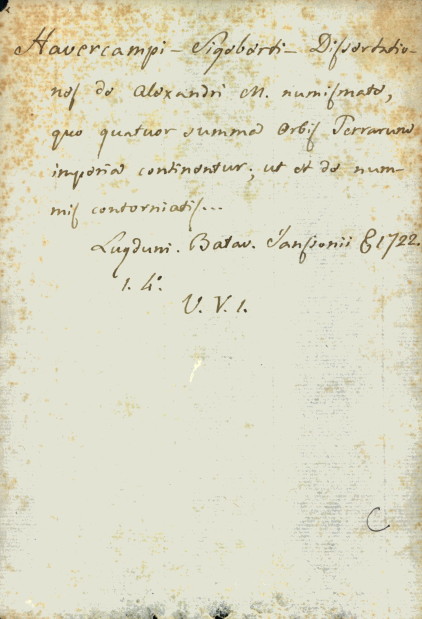 Havercampi - Sigeberti - Dissertatio-
nes de Alexandri M. numismate,
quo quatuor summa Orbis Terrarum
imperia continentur; ut et de num-
mis contorniatis...
Lugduni. Batav. Janssonii & 1722.
1. 4°.
U. V. 1.
C